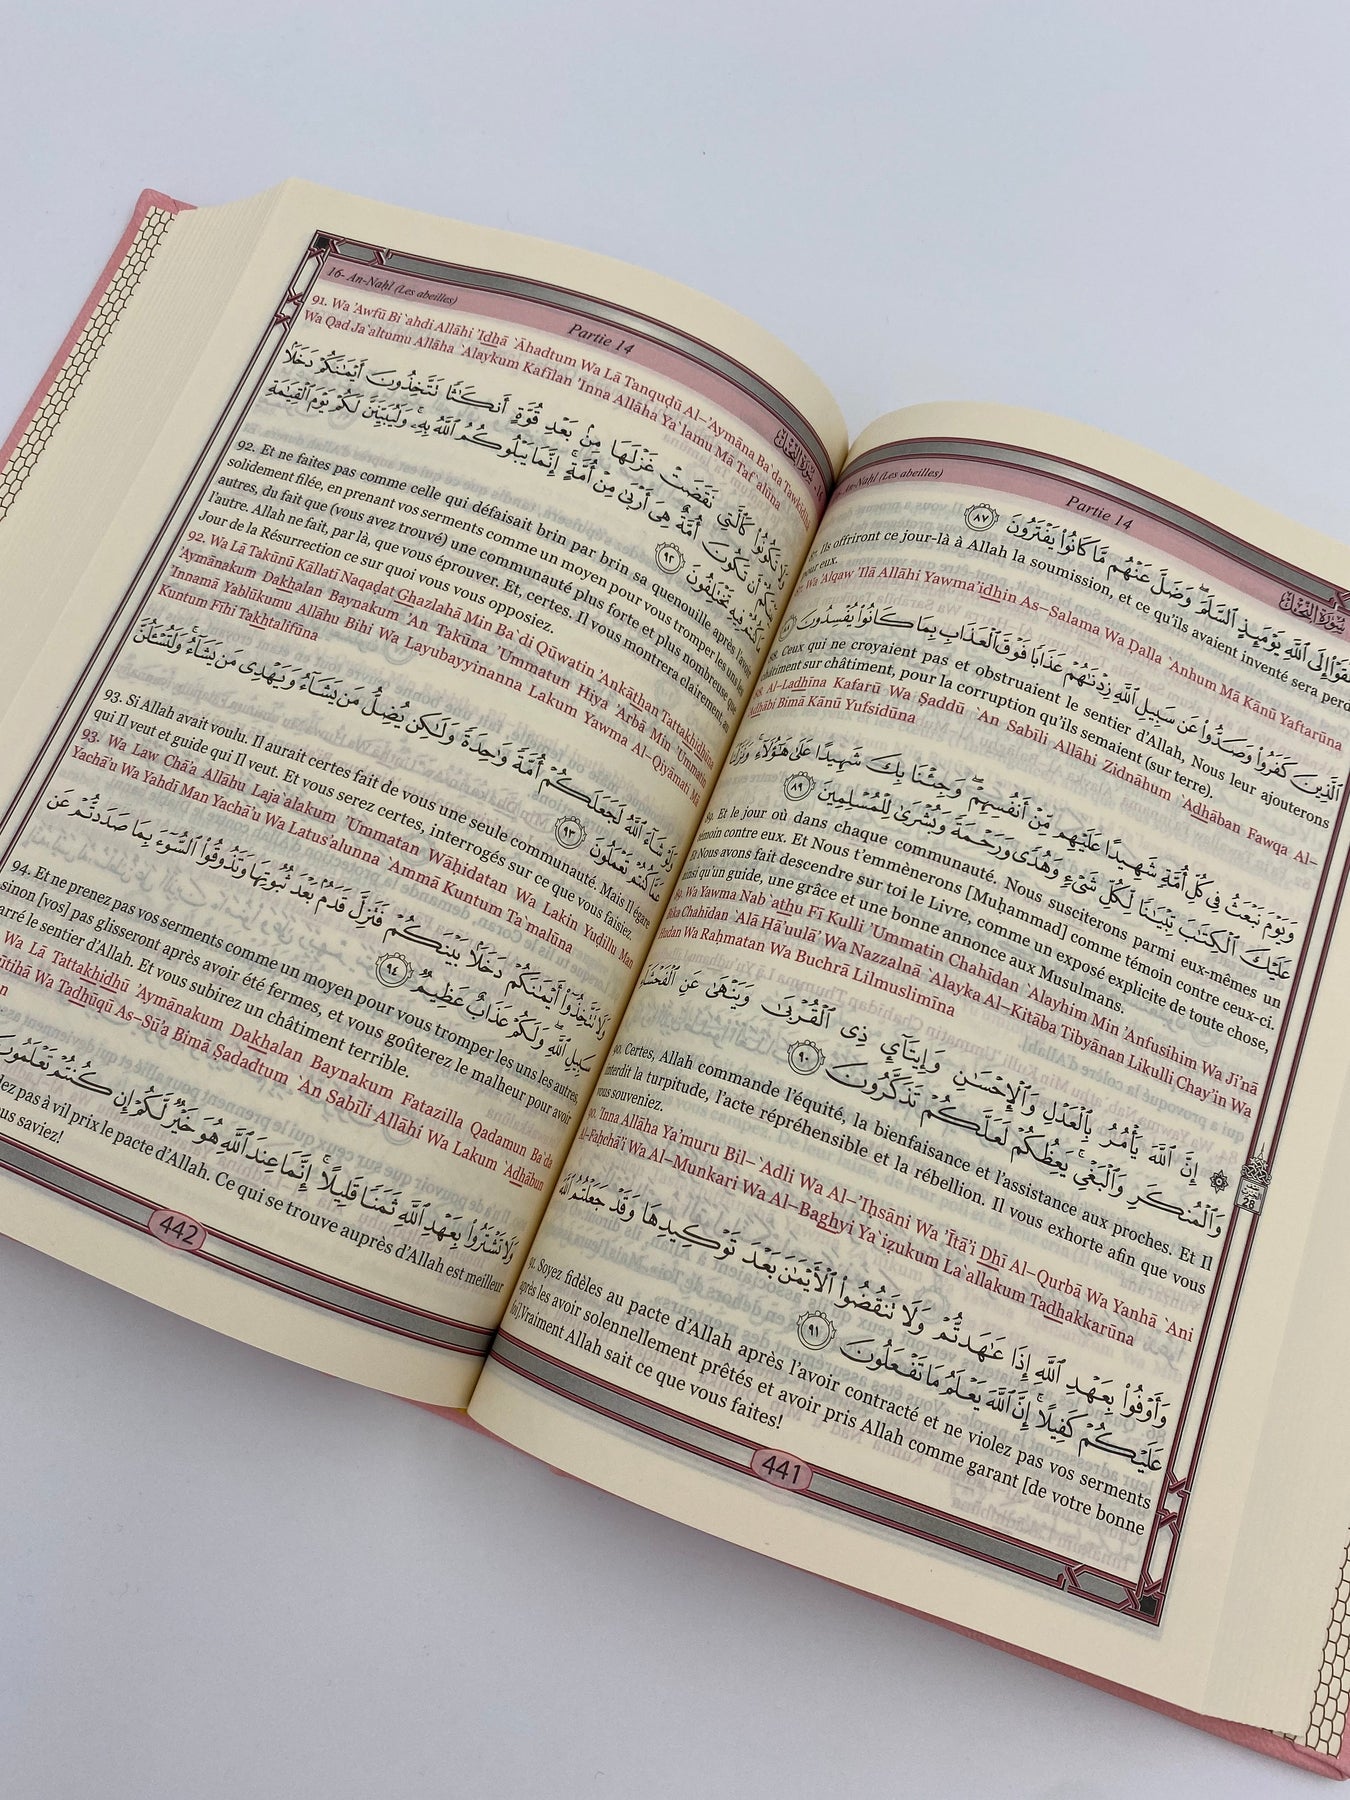 An-Nahl (Les abeilles)
Partie 14
سُورَةُ النَّحْلِ
إِلَى ٱللَّهِ يَوْمَئِذٍ ٱلسَّلَمَ ۖ وَضَلَّ عَنْهُم مَّا كَانُوا۟ يَفْتَرُونَ ٨٧
Ils offriront ce jour-là à Allah la soumission, et ce qu'ils avaient inventé sera perdu
pour eux.
Wa 'Alqaw 'Ilā Allāhi Yawma'idhin As–Salama Wa Ḍalla `Anhum Mā Kānū Yaftarūna
ٱلَّذِينَ كَفَرُوا۟ وَصَدُّوا۟ عَن سَبِيلِ ٱللَّهِ زِدْنَـٰهُمْ عَذَابًا فَوْقَ ٱلْعَذَابِ بِمَا كَانُوا۟ يُفْسِدُونَ
Ceux qui ne croyaient pas et obstruaient le sentier d'Allah, Nous leur ajouterons
châtiment sur châtiment, pour la corruption qu'ils semaient (sur terre).
Al–Ladhīna Kafarū Wa Ṣaddū `An Sabīli Allāhi Zidnāhum `Adhāban Fawqa Al–
`Adhābi Bimā Kānū Yufsidūna
وَيَوْمَ نَبْعَثُ فِى كُلِّ أُمَّةٍ شَهِيدًا عَلَيْهِم مِّنْ أَنفُسِهِمْ ۖ وَجِئْنَا بِكَ شَهِيدًا عَلَىٰ هَـٰٓؤُلَآءِ ۚ وَنَزَّلْنَا
عَلَيْكَ ٱلْكِتَـٰبَ تِبْيَـٰنًا لِّكُلِّ شَىْءٍ وَهُدًى وَرَحْمَةً وَبُشْرَىٰ لِلْمُسْلِمِينَ ٨٩
89. Et le jour où dans chaque communauté, Nous susciterons parmi eux-mêmes un
témoin contre eux. Et Nous t'emmènerons [Muḥammad] comme témoin contre ceux-ci.
Et Nous avons fait descendre sur toi le Livre, comme un exposé explicite de toute chose,
ainsi qu'un guide, une grâce et une bonne annonce aux Musulmans.
89. Wa Yawma Nab`athu Fī Kulli 'Ummatin Chahīdan `Alayhim Min 'Anfusihim Wa Ji'nā
Bika Chahīdan `Alā Hā'uulā' Wa Nazzalnā `Alayka Al–Kitāba Tibyānan Likulli Chay'in Wa
Hudan Wa Raḥmatan Wa Buchrā Lilmuslimīna
إِنَّ ٱللَّهَ يَأْمُرُ بِٱلْعَدْلِ وَٱلْإِحْسَـٰنِ وَإِيتَآئِ ذِى ٱلْقُرْبَىٰ وَيَنْهَىٰ عَنِ ٱلْفَحْشَآءِ
وَٱلْمُنكَرِ وَٱلْبَغْىِ ۚ يَعِظُكُمْ لَعَلَّكُمْ تَذَكَّرُونَ ٩٠
90. Certes, Allah commande l'équité, la bienfaisance et l'assistance aux proches. Et Il
interdit la turpitude, l'acte répréhensible et la rébellion. Il vous exhorte afin que vous
vous souveniez.
90. 'Inna Allāha Ya'muru Bil–`Adli Wa Al–'Iḥsāni Wa 'Ītā'i Dhī Al–Qurbā Wa Yanhā `Ani
Al–Faḥchā'i Wa Al–Munkari Wa Al–Baghyi Ya`iẓukum La`allakum Tadhakkarūna
وَأَوْفُوا۟ بِعَهْدِ ٱللَّهِ إِذَا عَـٰهَدتُّمْ وَلَا تَنقُضُوا۟ ٱلْأَيْمَـٰنَ بَعْدَ تَوْكِيدِهَا وَقَدْ جَعَلْتُمُ ٱللَّهَ
عَلَيْكُمْ كَفِيلًا ۚ إِنَّ ٱللَّهَ يَعْلَمُ مَا تَفْعَلُونَ ٩١
91. Soyez fidèles au pacte d'Allah après l'avoir contracté et ne violez pas vos serments
après les avoir solennellement prêtés et avoir pris Allah comme garant [de votre bonne
foi].Vraiment Allah sait ce que vous faites!
28
441
16- An-Naḥl (Les abeilles)
Partie 14
91. Wa 'Awfū Bi`ahdi Allāhi 'Idhā `Āhadtum Wa Lā Tanquḍū Al–'Aymāna Ba`da Tawkīdihā
Wa Qad Ja`altumu Allāha `Alaykum Kafīlan 'Inna Allāha Ya`lamu Mā Taf`alūna
تَكُونُوا۟ كَٱلَّتِى نَقَضَتْ غَزْلَهَا مِنۢ بَعْدِ قُوَّةٍ أَنكَـٰثًا تَتَّخِذُونَ أَيْمَـٰنَكُمْ دَخَلًۢا
أَن تَكُونَ أُمَّةٌ هِىَ أَرْبَىٰ مِنْ أُمَّةٍ ۚ إِنَّمَا يَبْلُوكُمُ ٱللَّهُ بِهِۦ ۚ وَلَيُبَيِّنَنَّ لَكُمْ يَوْمَ ٱلْقِيَـٰمَةِ
مَا كُنتُمْ فِيهِ تَخْتَلِفُونَ ٩٢
92. Et ne faites pas comme celle qui défaisait brin par brin sa quenouille après l'avoir
solidement filée, en prenant vos serments comme un moyen pour vous tromper les uns les
autres, du fait que (vous avez trouvé) une communauté plus forte et plus nombreuse que
l'autre. Allah ne fait, par là, que vous éprouver. Et, certes. Il vous montrera clairement, au
Jour de la Résurrection ce sur quoi vous vous opposiez.
92. Wa Lā Takūnū Kāllatī Naqaḍat Ghazlahā Min Ba`di Qūwatin 'Ankāthan Tattakhidhūna
'Aymānakum Dakhalan Baynakum 'An Takūna 'Ummatun Hiya 'Arbá Min 'Ummatin
'Innamā Yablūkumu Allāhu Bihi Wa Layubayyinanna Lakum Yawma Al–Qiyāmati Mā
Kuntum Fīhi Takhtalifūna
وَلَوْ شَآءَ ٱللَّهُ لَجَعَلَكُمْ أُمَّةً وَٰحِدَةً وَلَـٰكِن يُضِلُّ مَن يَشَآءُ وَيَهْدِى مَن يَشَآءُ ۚ وَلَتُسْـَٔلُنَّ
عَمَّا كُنتُمْ تَعْمَلُونَ ٩٣
93. Si Allah avait voulu. Il aurait certes fait de vous une seule communauté. Mais Il égare
qui Il veut et guide qui Il veut. Et vous serez certes, interrogés sur ce que vous faisiez.
93. Wa Law Chā'a Allāhu Laja`alakum 'Ummatan Wāḥidatan Wa Lakin Yuḍillu Man
Yachā'u Wa Yahdī Man Yachā'u Wa Latus'alunna `Ammā Kuntum Ta`malūna
وَلَا تَتَّخِذُوٓا۟ أَيْمَـٰنَكُمْ دَخَلًۢا بَيْنَكُمْ فَتَزِلَّ قَدَمٌۢ بَعْدَ ثُبُوتِهَا وَتَذُوقُوا۟ ٱلسُّوٓءَ بِمَا صَدَدتُّمْ عَن
سَبِيلِ ٱللَّهِ ۖ وَلَكُمْ عَذَابٌ عَظِيمٌ ٩٤
94. Et ne prenez pas vos serments comme un moyen pour vous tromper les uns les autres,
sinon [vos] pas glisseront après avoir été fermes, et vous goûterez le malheur pour avoir
barré le sentier d'Allah. Et vous subirez un châtiment terrible.
Wa Lā Tattakhidhū 'Aymānakum Dakhalan Baynakum Fatazilla Qadamun Ba`da
Thubūtihā Wa Tadhūqū As–Sū'a Bimā Ṣadadtum `An Sabīli Allāhi Wa Lakum `Adhābun
وَلَا تَشْتَرُوا۟ بِعَهْدِ ٱللَّهِ ثَمَنًا قَلِيلًا ۚ إِنَّمَا عِندَ ٱللَّهِ هُوَ خَيْرٌ لَّكُمْ إِن كُنتُمْ تَعْلَمُونَ
pas à vil prix le pacte d'Allah. Ce qui se trouve auprès d'Allah est meilleur
saviez!
442